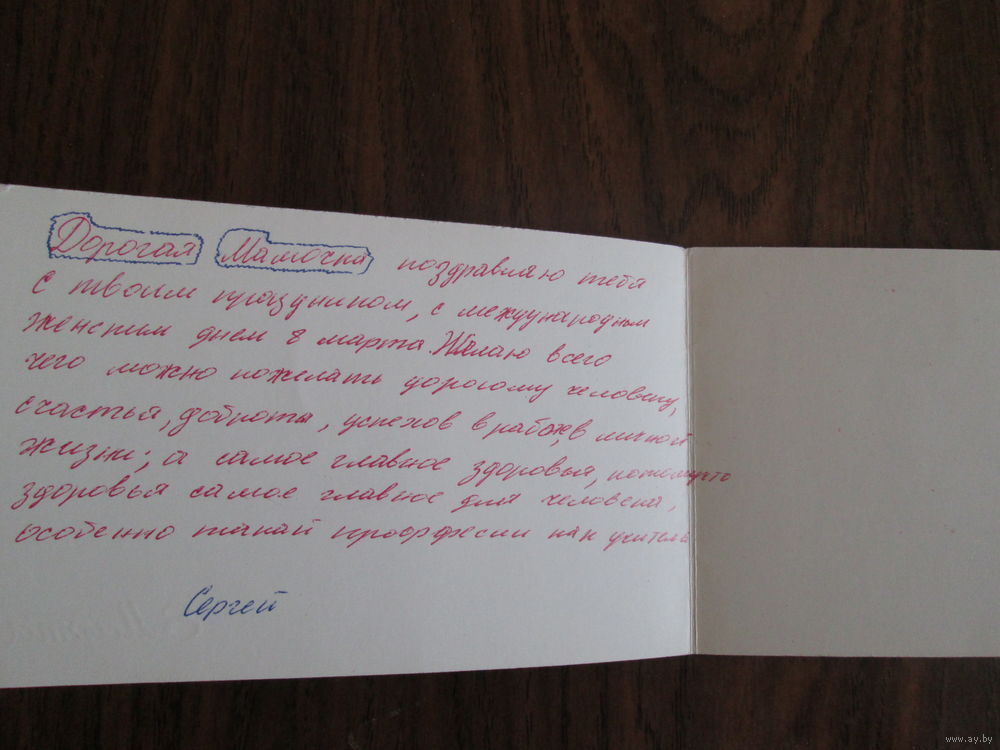 Дорогая Мамочка поздравляю тебя
с твоим праздником, с международным
женским днем 8 марта. Желаю всего
чего можно пожелать дорогому человеку,
счастья, доброты, успехов в работе, в личной
жизни, а самое главное здоровья, потому что
здоровья самое главное для человека,
особенно такай профессии как учитель
Сергей
www.ay.by